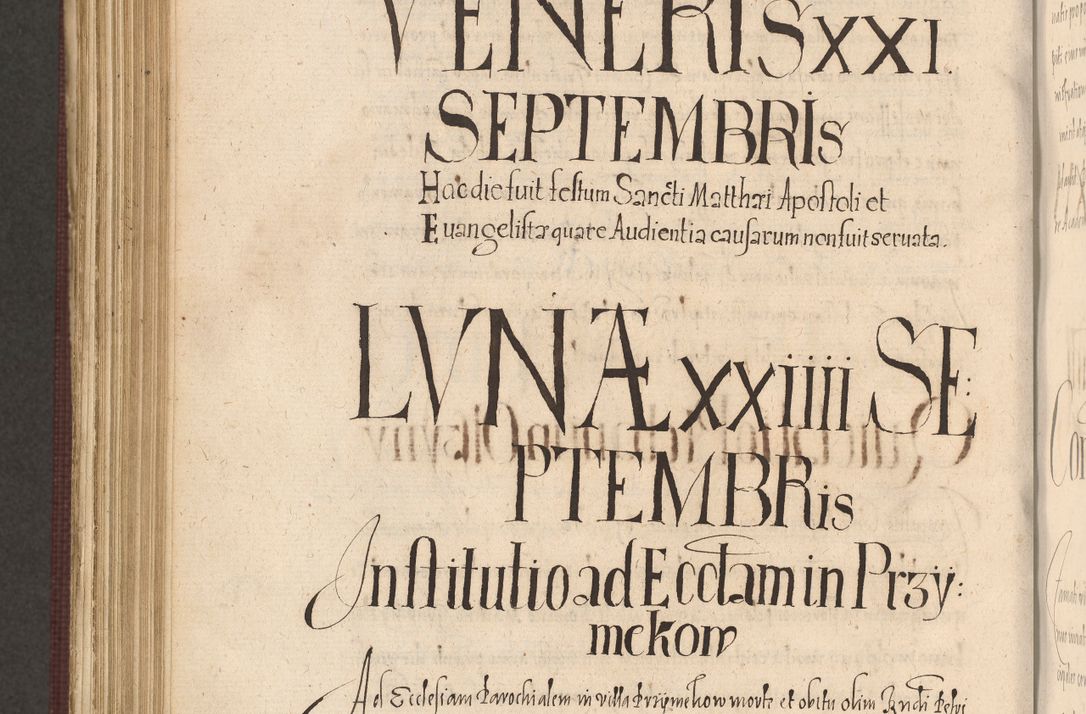 VENERIS XXI
SEPTEMBRIS
Hac die fuit festum Sancti Matthæi Apostoli et
Euangelistæ quare Audientia causarum non fuit seruata.
LVNÆ XXIIII SE:
PTEMBRis
Institutio ad Ecclam in Przÿ:
mekow
Ad Ecclesiam Parochialem in villa Przÿmekow morte et obitu olim Petri